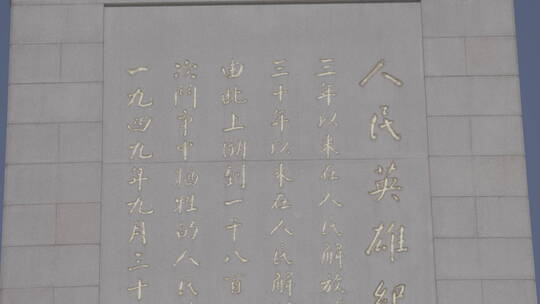 人民英雄紀
三年以来在人民解放
三十年以来在人民解
由此上溯到一千八百
次鬥争中牺牲的人民
一九四九年九月三十